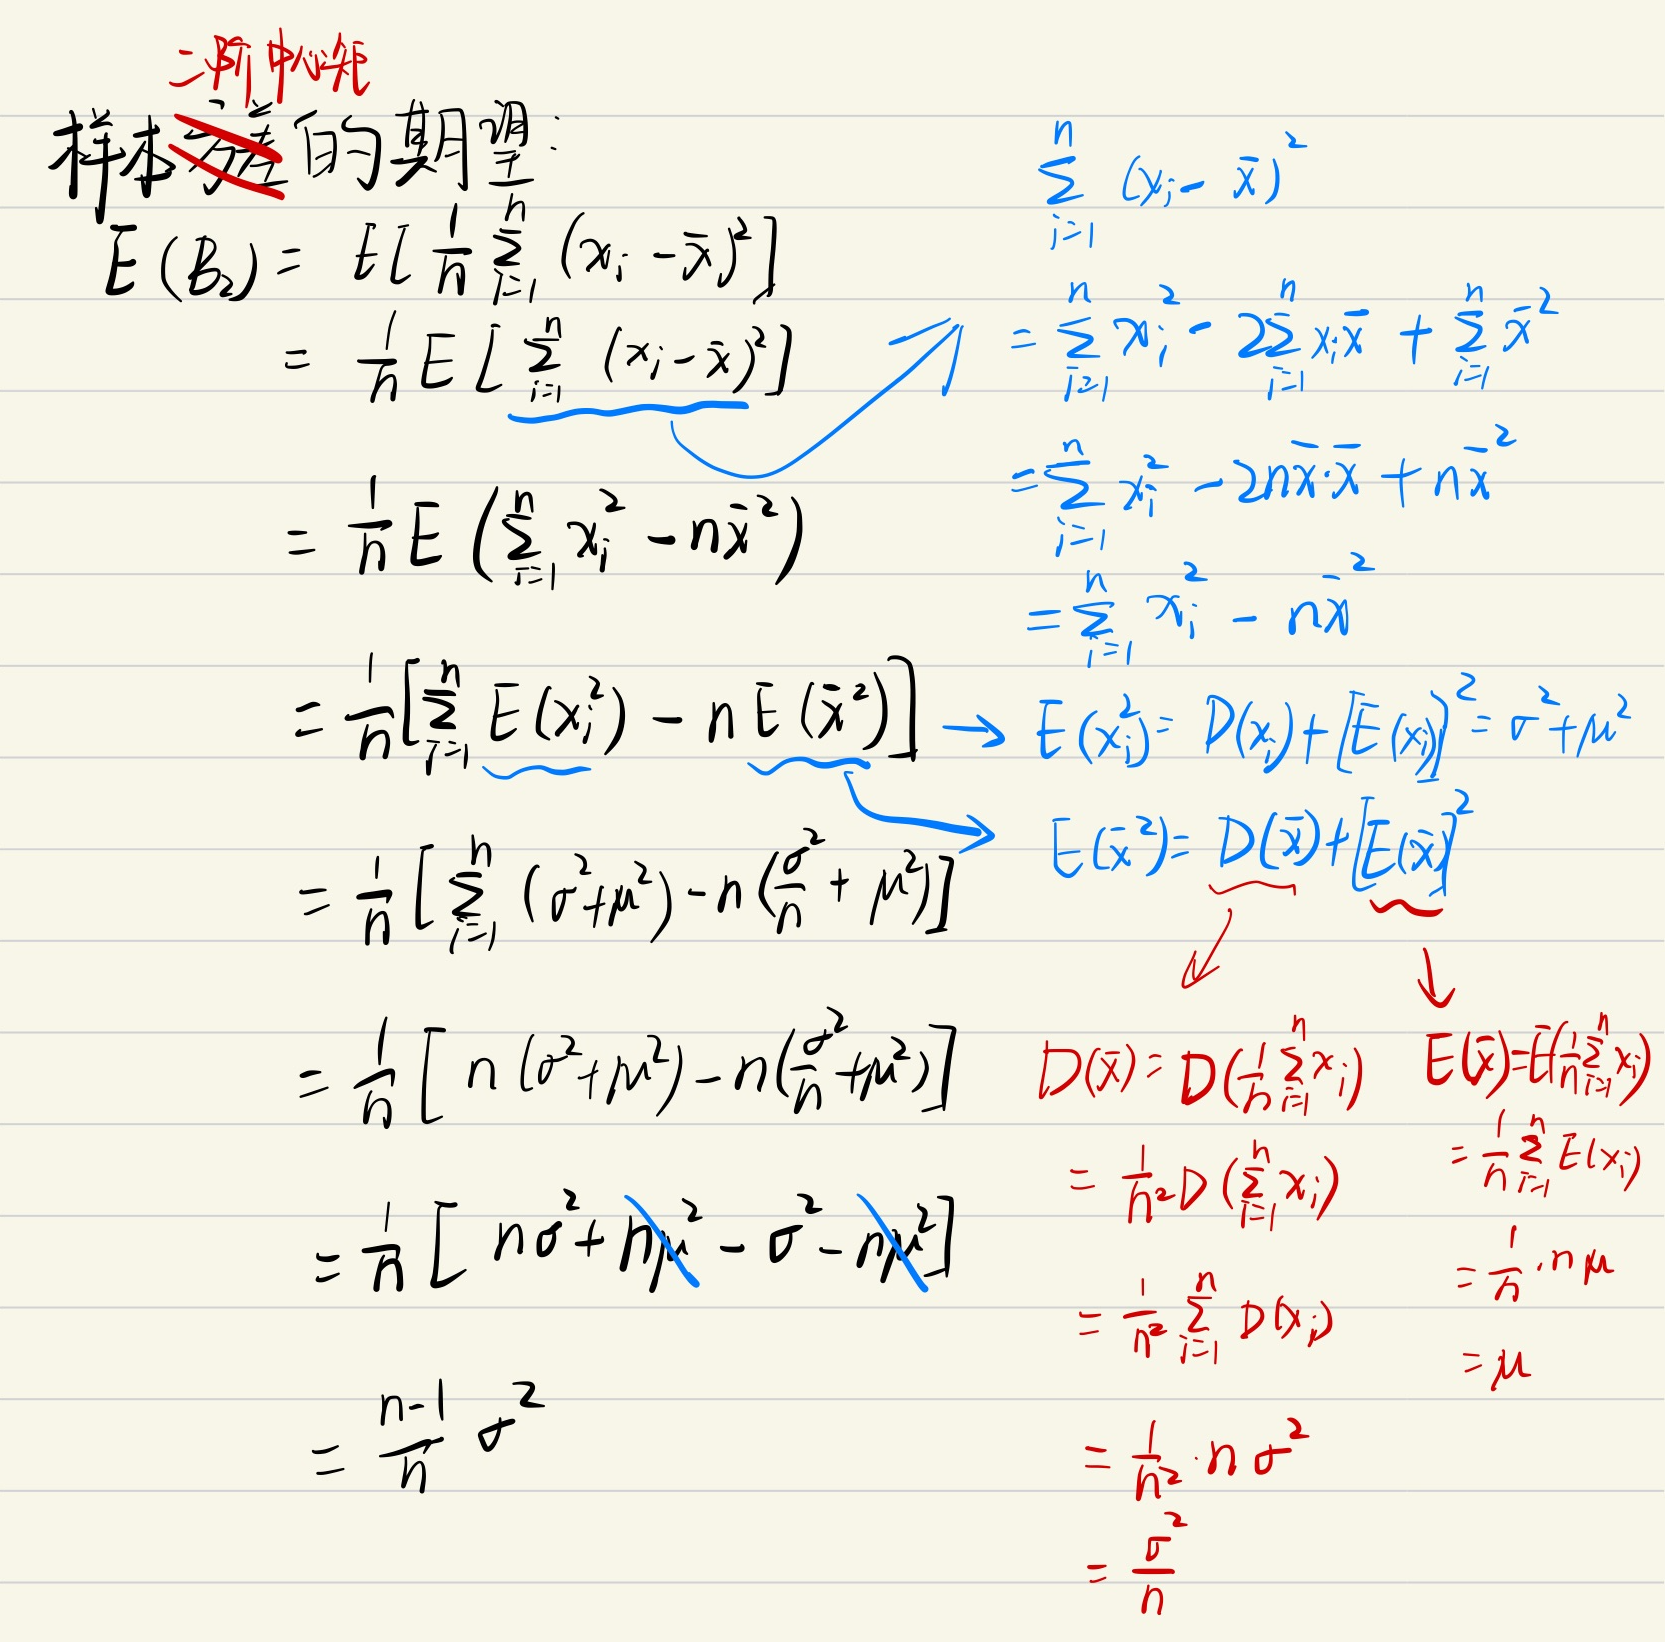 二阶中心矩
样本方差的期望:
E(B₂) = E[1/n ∑ᵢ₌₁ⁿ (xᵢ - x̄)²]
= 1/n E[∑ᵢ₌₁ⁿ (xᵢ - x̄)²]
= 1/n E(∑ᵢ₌₁ⁿ xᵢ² - nx̄²)
= 1/n [∑ᵢ₌₁ⁿ E(xᵢ²) - nE(x̄²)]
= 1/n [∑ᵢ₌₁ⁿ (σ²+μ²) - n(σ²/n + μ²)]
= 1/n [n(σ²+μ²) - n(σ²/n + μ²)]
= 1/n [nσ² + nμ² - σ² - nμ²]
= n-1/n σ²
∑ᵢ₌₁ⁿ (xᵢ - x̄)²
= ∑ᵢ₌₁ⁿ xᵢ² - 2∑ᵢ₌₁ⁿ xᵢx̄ + ∑ᵢ₌₁ⁿ x̄²
= ∑ᵢ₌₁ⁿ xᵢ² - 2nx̄·x̄ + nx̄²
= ∑ᵢ₌₁ⁿ xᵢ² - nx̄²
E(xᵢ²) = D(xᵢ) + [E(xᵢ)]² = σ²+μ²
E(x̄²) = D(x̄) + [E(x̄)]²
D(x̄) = D(1/n ∑ᵢ₌₁ⁿ xᵢ)
= 1/n² D(∑ᵢ₌₁ⁿ xᵢ)
= 1/n² ∑ᵢ₌₁ⁿ D(xᵢ)
= 1/n² · nσ²
= σ²/n
E(x̄) = E(1/n ∑ᵢ₌₁ⁿ xᵢ)
= 1/n ∑ᵢ₌₁ⁿ E(xᵢ)
= 1/n · nμ
= μ